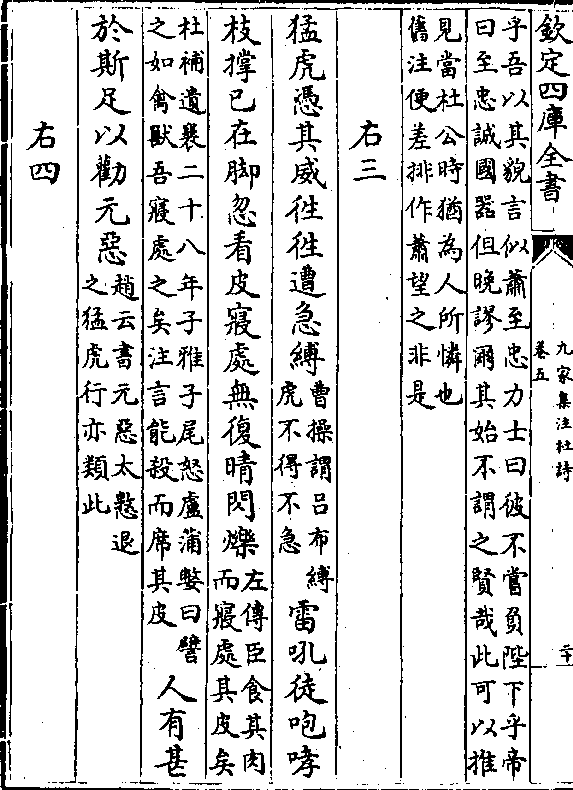 欽定四庫全書
九家集注杜詩
卷五
二十
乎吾以其貌言似蕭至忠力士曰彼不嘗負陛下乎帝
曰至忠誠國器但晚謬爾其始不謂之賢哉此可以推
見當杜公時猶為人所憐也
舊注便差排作蕭望之非是
右三
猛虎憑其威徃徃遭急縛
曹操謂吕布縛
虎不得不急
雷吼徒咆哮
枝撑已在脚忽看皮寢處無復晴閃爍
左傳臣食其肉
而寢處其皮矣
杜補遺襄二十八年子雅子尾怒盧蒲嫳曰譬
之如禽獸吾寢處之矣注言能殺而席其皮
人有甚
於斯足以勸元惡
趙云書元惡太憝退
之猛虎行亦類此
右四